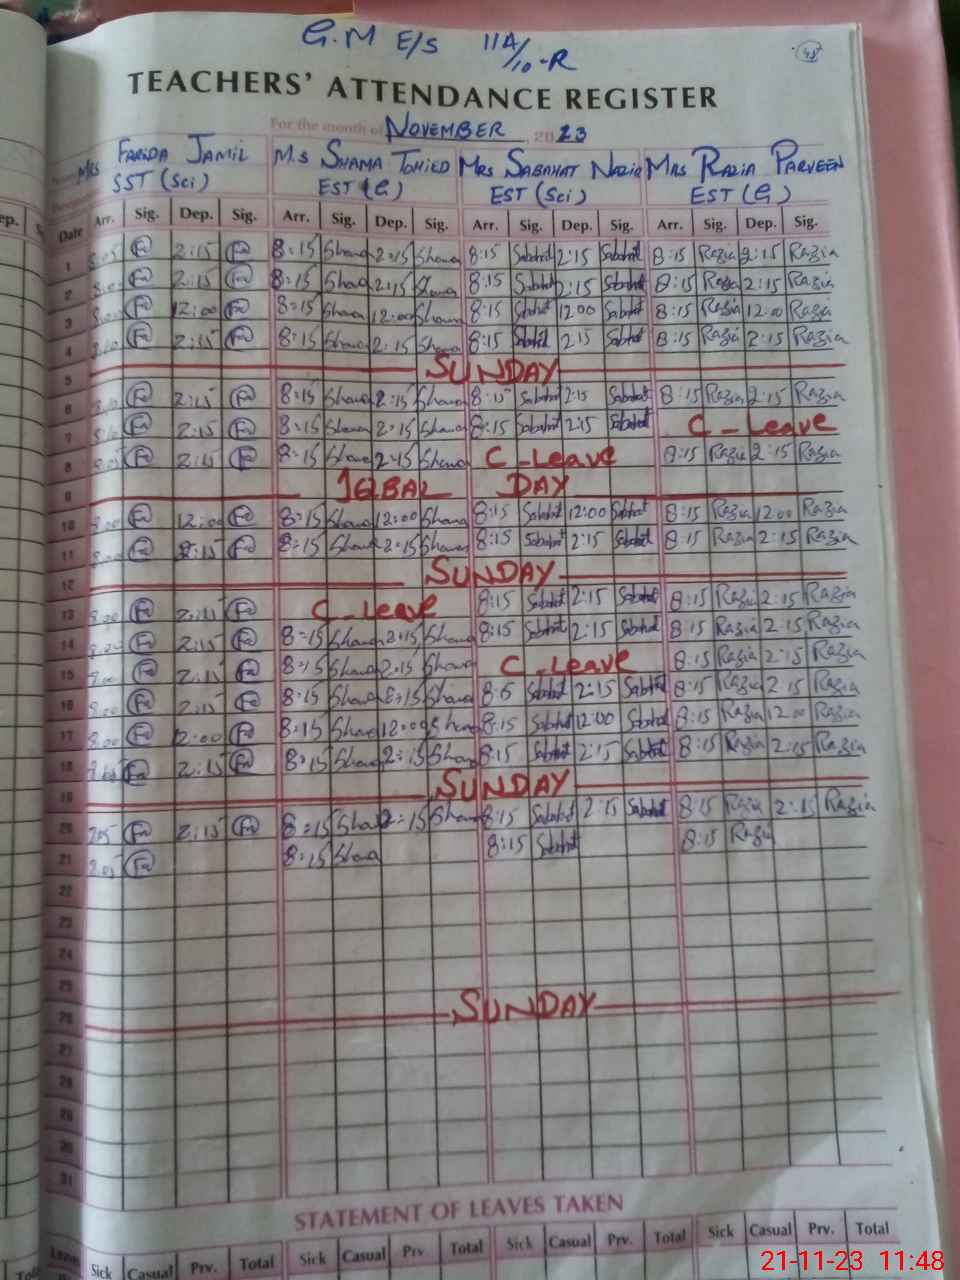 G.M E/S 11A/10-R
48
TEACHERS' ATTENDANCE REGISTER
For the month of NOVEMBER, 2023
Mrs FARIDA JAMIL M.s SHAMA TOHIED Mrs SABAHAT NAZIR Mrs RAZIA PARVEEN
SST (Sci) EST (G) EST (Sci) EST (G)
Date Arr. Sig. Dep. Sig. Arr. Sig. Dep. Sig. Arr. Sig. Dep. Sig. Arr. Sig. Dep. Sig.
1 8:05 Fa 2:15 Fa 8:15 Shama 2:15 Shama 8:15 Sabahat 2:15 Sabahat 8:15 Razia 2:15 Razia
2 Fa 2:15 Fa 8:15 Shama 2:15 Shama 8:15 Sabahat 2:15 Sabahat 8:15 Razia 2:15 Razia
3 8:00 Fa 12:00 Fa 8:15 Shama 12:00 Shama 8:15 Sabahat 12:00 Sabahat 8:15 Razia 12:00 Razia
4 Fa 2:15 Fa 8:15 Shama 2:15 Shama 8:15 Sabahat 2:15 Sabahat 8:15 Razia 2:15 Razia
5 SUNDAY
6 Fa 2:15 Fa 8:15 Shama 2:15 Shama 8:15 Sabahat 2:15 Sabahat 8:15 Razia 2:15 Razia
7 8:10 Fa 2:15 Fa 8:15 Shama 2:15 Shama 8:15 Sabahat 2:15 Sabahat C-Leave
8 8:05 Fa 2:15 Fa 8:15 Shama 2:15 Shama C-Leave 8:15 Razia 2:15 Razia
9 IQBAL DAY
10 8:00 Fa 12:00 Fa 8:15 Shama 12:00 Shama 8:15 Sabahat 12:00 Sabahat 8:15 Razia 12:00 Razia
11 8:00 Fa 2:15 Fa 8:15 Shama 2:15 Shama 8:15 Sabahat 2:15 Sabahat 8:15 Razia 2:15 Razia
12 SUNDAY
13 8:00 Fa 2:15 Fa C-Leave 8:15 Sabahat 2:15 Sabahat 8:15 Razia 2:15 Razia
14 Fa 2:15 Fa 8:15 Shama 2:15 Shama 8:15 Sabahat 2:15 Sabahat 8:15 Razia 2:15 Razia
15 Fa 2:15 Fa 8:15 Shama 2:15 Shama C-Leave 8:15 Razia 2:15 Razia
16 8:00 Fa 2:15 Fa 8:15 Shama 2:15 Shama Sabahat 2:15 Sabahat 8:15 Razia 2:15 Razia
17 8:00 Fa 12:00 Fa 8:15 Shama 12:00 Shama 8:15 Sabahat 12:00 Sabahat 8:15 Razia 12:00 Razia
18 Fa 2:15 Fa 8:15 Shama 2:15 Shama 8:15 Sabahat 2:15 Sabahat 8:15 Razia 2:15 Razia
19 SUNDAY
20 Fa 2:15 Fa 8:15 Shama 2:15 Shama 8:15 Sabahat 2:15 Sabahat 8:15 Razia 2:15 Razia
21 8:05 Fa 8:15 Shama 8:15 Sabahat 8:15 Razia
22
23
24
25
26 SUNDAY
27
28
29
30
31
STATEMENT OF LEAVES TAKEN
Leave Sick Casual Prv. Total Sick Casual Prv Total Sick Casual Prv. Total Sick Casual Prv. Total
21-11-23 11:48